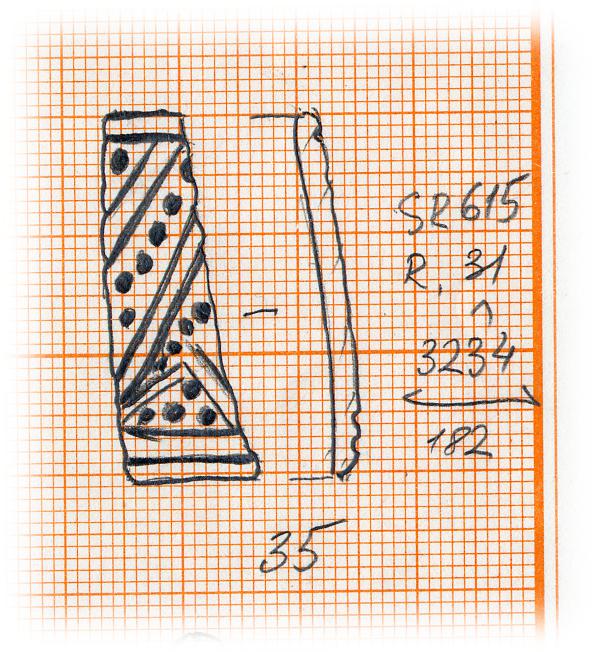 SR 615
R. 31
3234
182
35